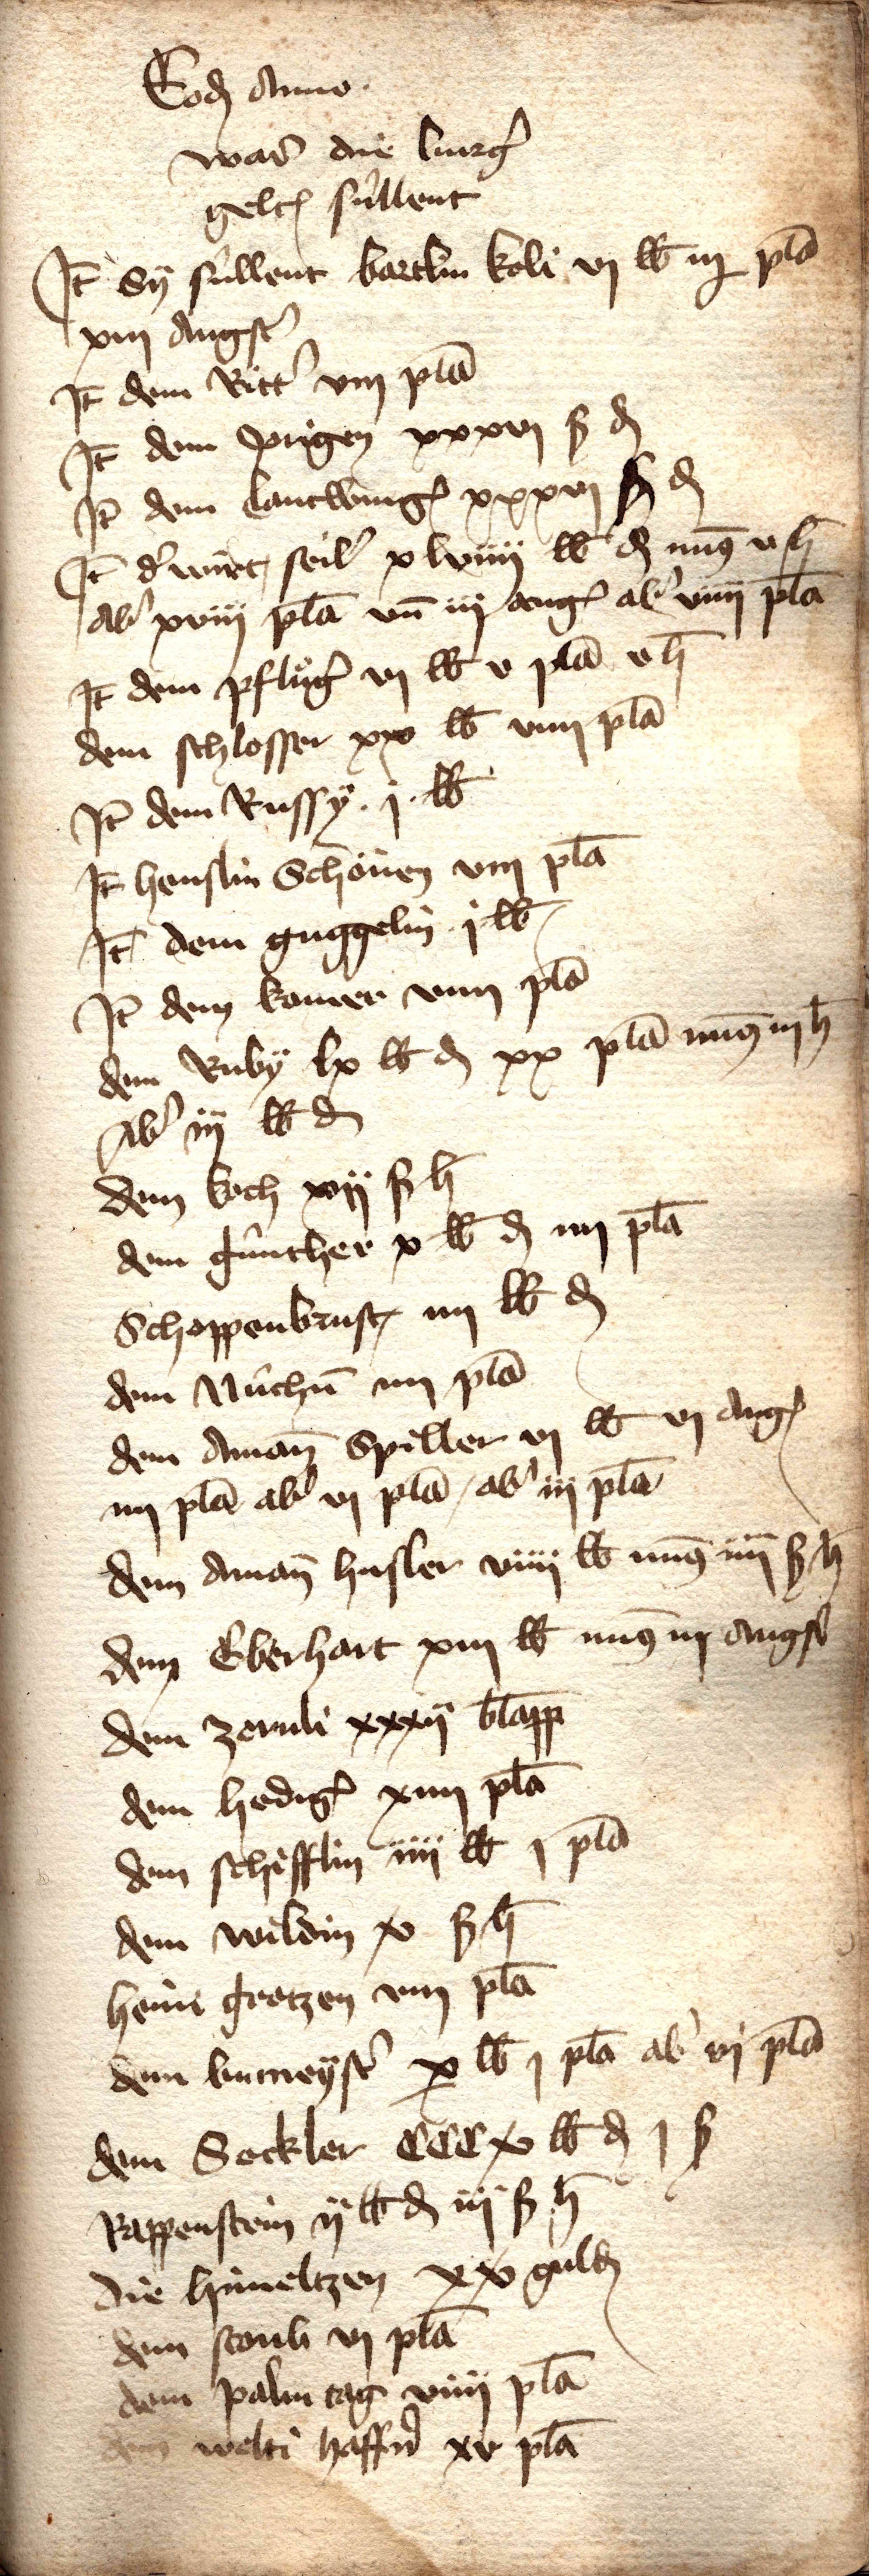 Eod Anno
was die burg̉
gelt sûllent
It sÿ sûllent bartlin koli vj lb iij plā
xiij Angst̉
It dem Ritt̉ viij plā
It dem Prigen xxxvj ß d
It dem lantwing xxxvj ß d
It d̉ wirt seil̉ x lviiij lb d min9 v h
ab̉ xviij plā vn̄ iij ang ab̉ viiij plā
It dem pflůg̉ vj lb v plā v h
dem schlosser xx lb viiij plā
It dem Russÿ . j . lb
It henslin Schönen viij plā
It dem guggelin j lb
It dem komer viiij plā
dem Rubÿ lx lb d xx plā min9 iij h
Ab̉ iij lb d
dem koch xvij ß h
dem gûnther x lb d iiij plā
Schoppenbrust iiij lb d
dem Nûchū iiij plā
dem Aman̄ Spiller vj lb vj Ang
iiij plā ab̉ vj plā / ab̉ iij plā
dem Aman̄ husler viiij lb min9 iiij ß h
dem Eberhart xiij lb min9 iij Angst̉
dem zernli xxxij blapp
dem hedig xiiij plā
dem schifflin iiij lb j plā
dem wildin x ß h
heini gretzen viij plā
dem bumeÿst̉ x lb j plā ab̉ vj plā
dem Seckler CCC x lb d j ß
Rappenstein ij lb d iij ß h
die himeltzen xx guld
dem stouli vj plā
dem palm tag viiij plā
dem welti haffn̉ xv plā